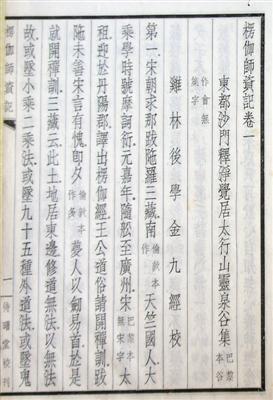 楞伽師資記卷一
東都沙門釋淨覺居太行山靈泉谷集巴黎本谷
作會無集字
雞林後學金九經校
第一宋朝求那跋陀羅三藏南倫敦本作天竺國人大
乘學時號摩訶衍元嘉年隨舩至廣州宋巴黎本無宋字太
祖迎於丹陽郡譯出楞伽經王公道俗請開禪訓跋
陀未善宋言有愧即夕倫敦本作多夢人以劍易首於是
就開禪訓三藏云此土地居東邊修道無法以無法
故或墮小乘二乘法或墮九十五種外道法或墮鬼
楞伽師資記
一
待曙堂校刊